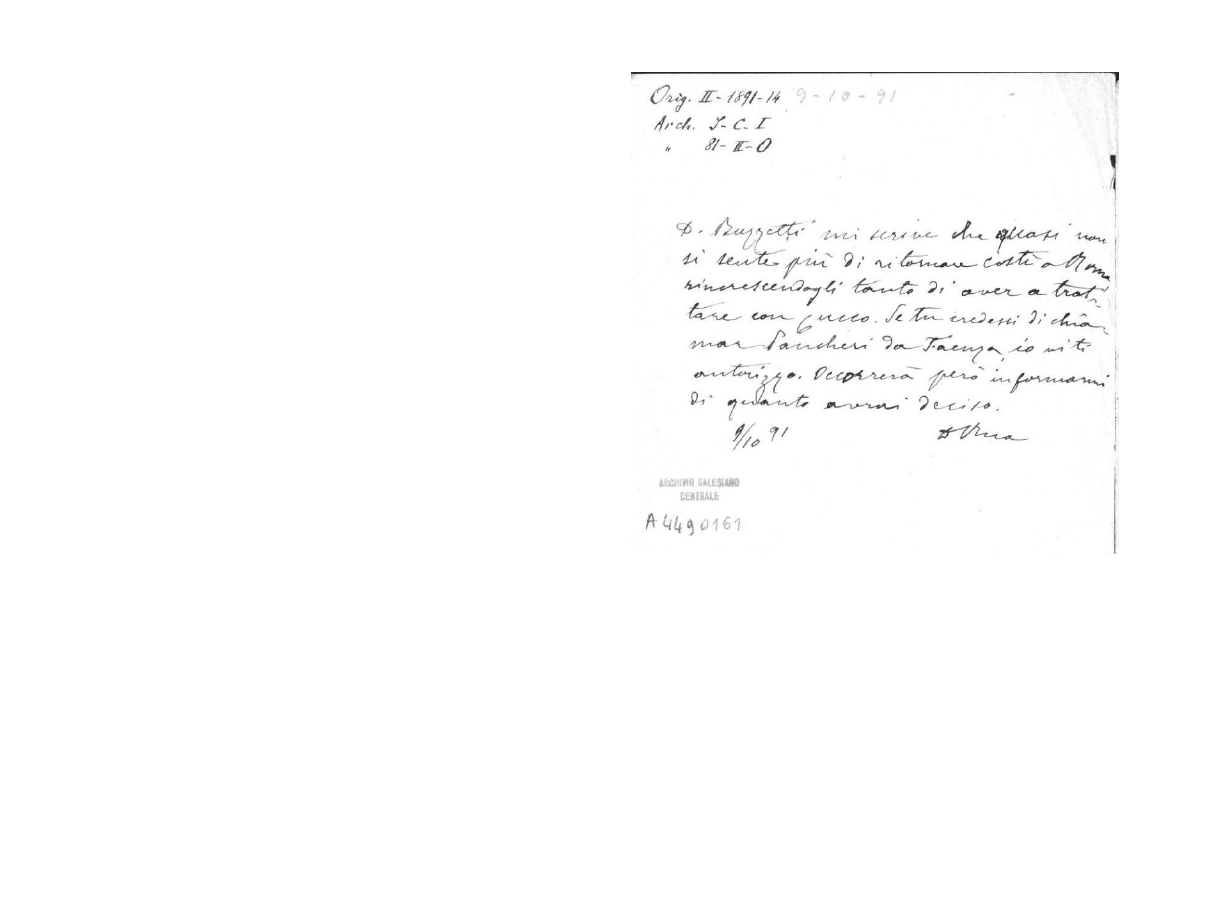 Orig. II - 1891-14 9-10-91
Arch. S-C-I
" 81-II-O
D. Buzzetti mi scrive che quasi non
si sente più di ritornare costì a Roma
rincrescendogli tanto di aver a trat-
tare con Cucco. Se tu credessi di chia-
mar Pancheri da Faenza, io vi ti
autorizzo. Occorrerà però informarmi
di quanto avrai deciso.
9/10 91 D Rua
ARCHIVIO SALESIANO
CENTRALE
A4490161